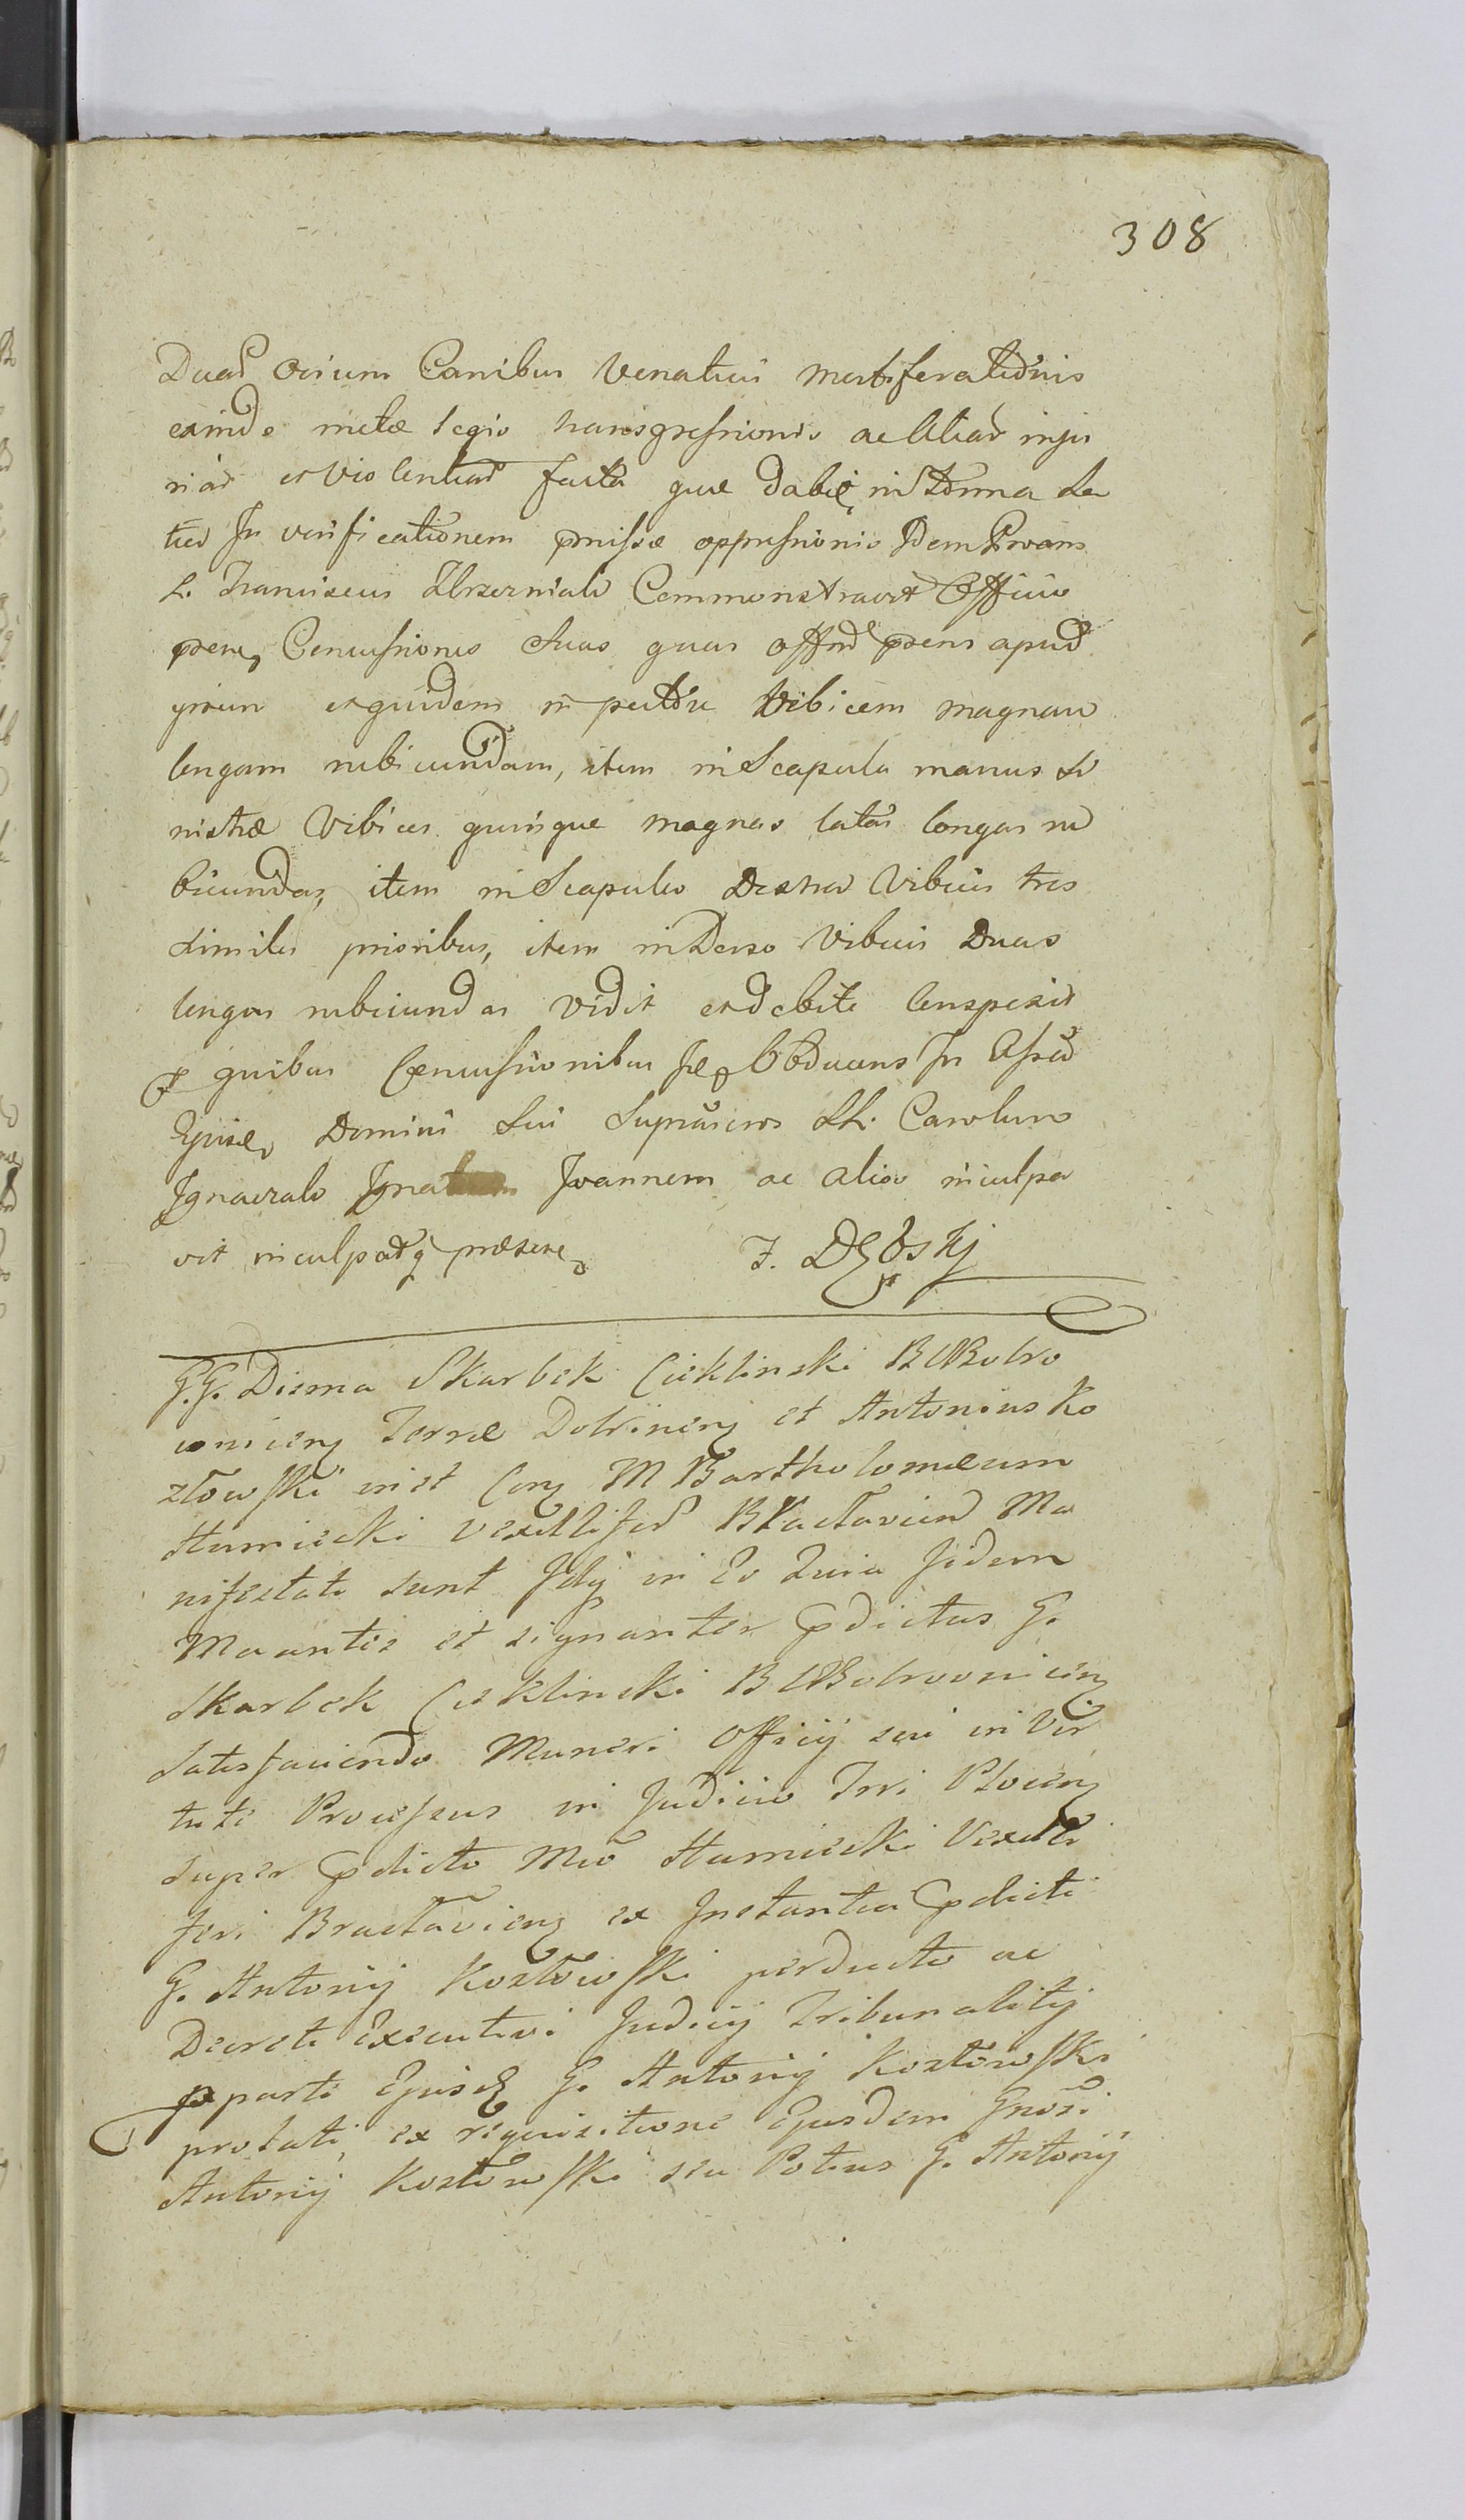 308
Duas ovium Canibus Venaticis mortiferationis
exinde metæ legis transgressionis ac Alias inju
rias et violentias factas quæ dabit in Termino La
tius In verificationem pmissæ oppressionis Idem Pro
L. Franciscus Commonstravit Officio
psenti Concussiones Suas quas Offm psens apud
ipsum et quidem in pectore Vibicem magnam
longam rubicundam, item in Scapula manus Si
nistræ Vibices quinque magnas latas longas ru
bicundas, item in Scapula Dextra Vibices tres
similes prioribus, item in Dorso Vibices Duas
longas rubicundas Vidit et debite Conspexit
P quibus Concussionibus se Obducens In Assist
Ejusd Domini Sui Suprascros LL. Carolum
Ignaczak Joannem ac alios inculpa
vit inculpatq præsente
F. Dębskj
G.G. Disma Skarbek Cieklinski Bobro
wnicen Terræ Dobrinen et Antonius Ko
złowski inst Con M Bartholomæum
Humiecki Vexillifer Bractavien Ma
nifestati sunt Idq in Eo Quia Iidem
Maantes et signanter pdictus G.
Skarbek Cieklinski Bobrownicen
Satisfaciendo Muneri Officij sui in Vir
tute Processus in Judicio Trri Plocen
super pdicto Mco Humiecki Vexilli
feri Bractavien ex Instantia pdicti
G. Antonij Kozłowski perducto ac
Decreti Executivi Judicij Tribunalitij
p parte Ejusd G. Antonij Kozłowski
probati, ex requisitione Ejusdem Gnosi
Antonij Kozłowski seu Potius G. Antonij